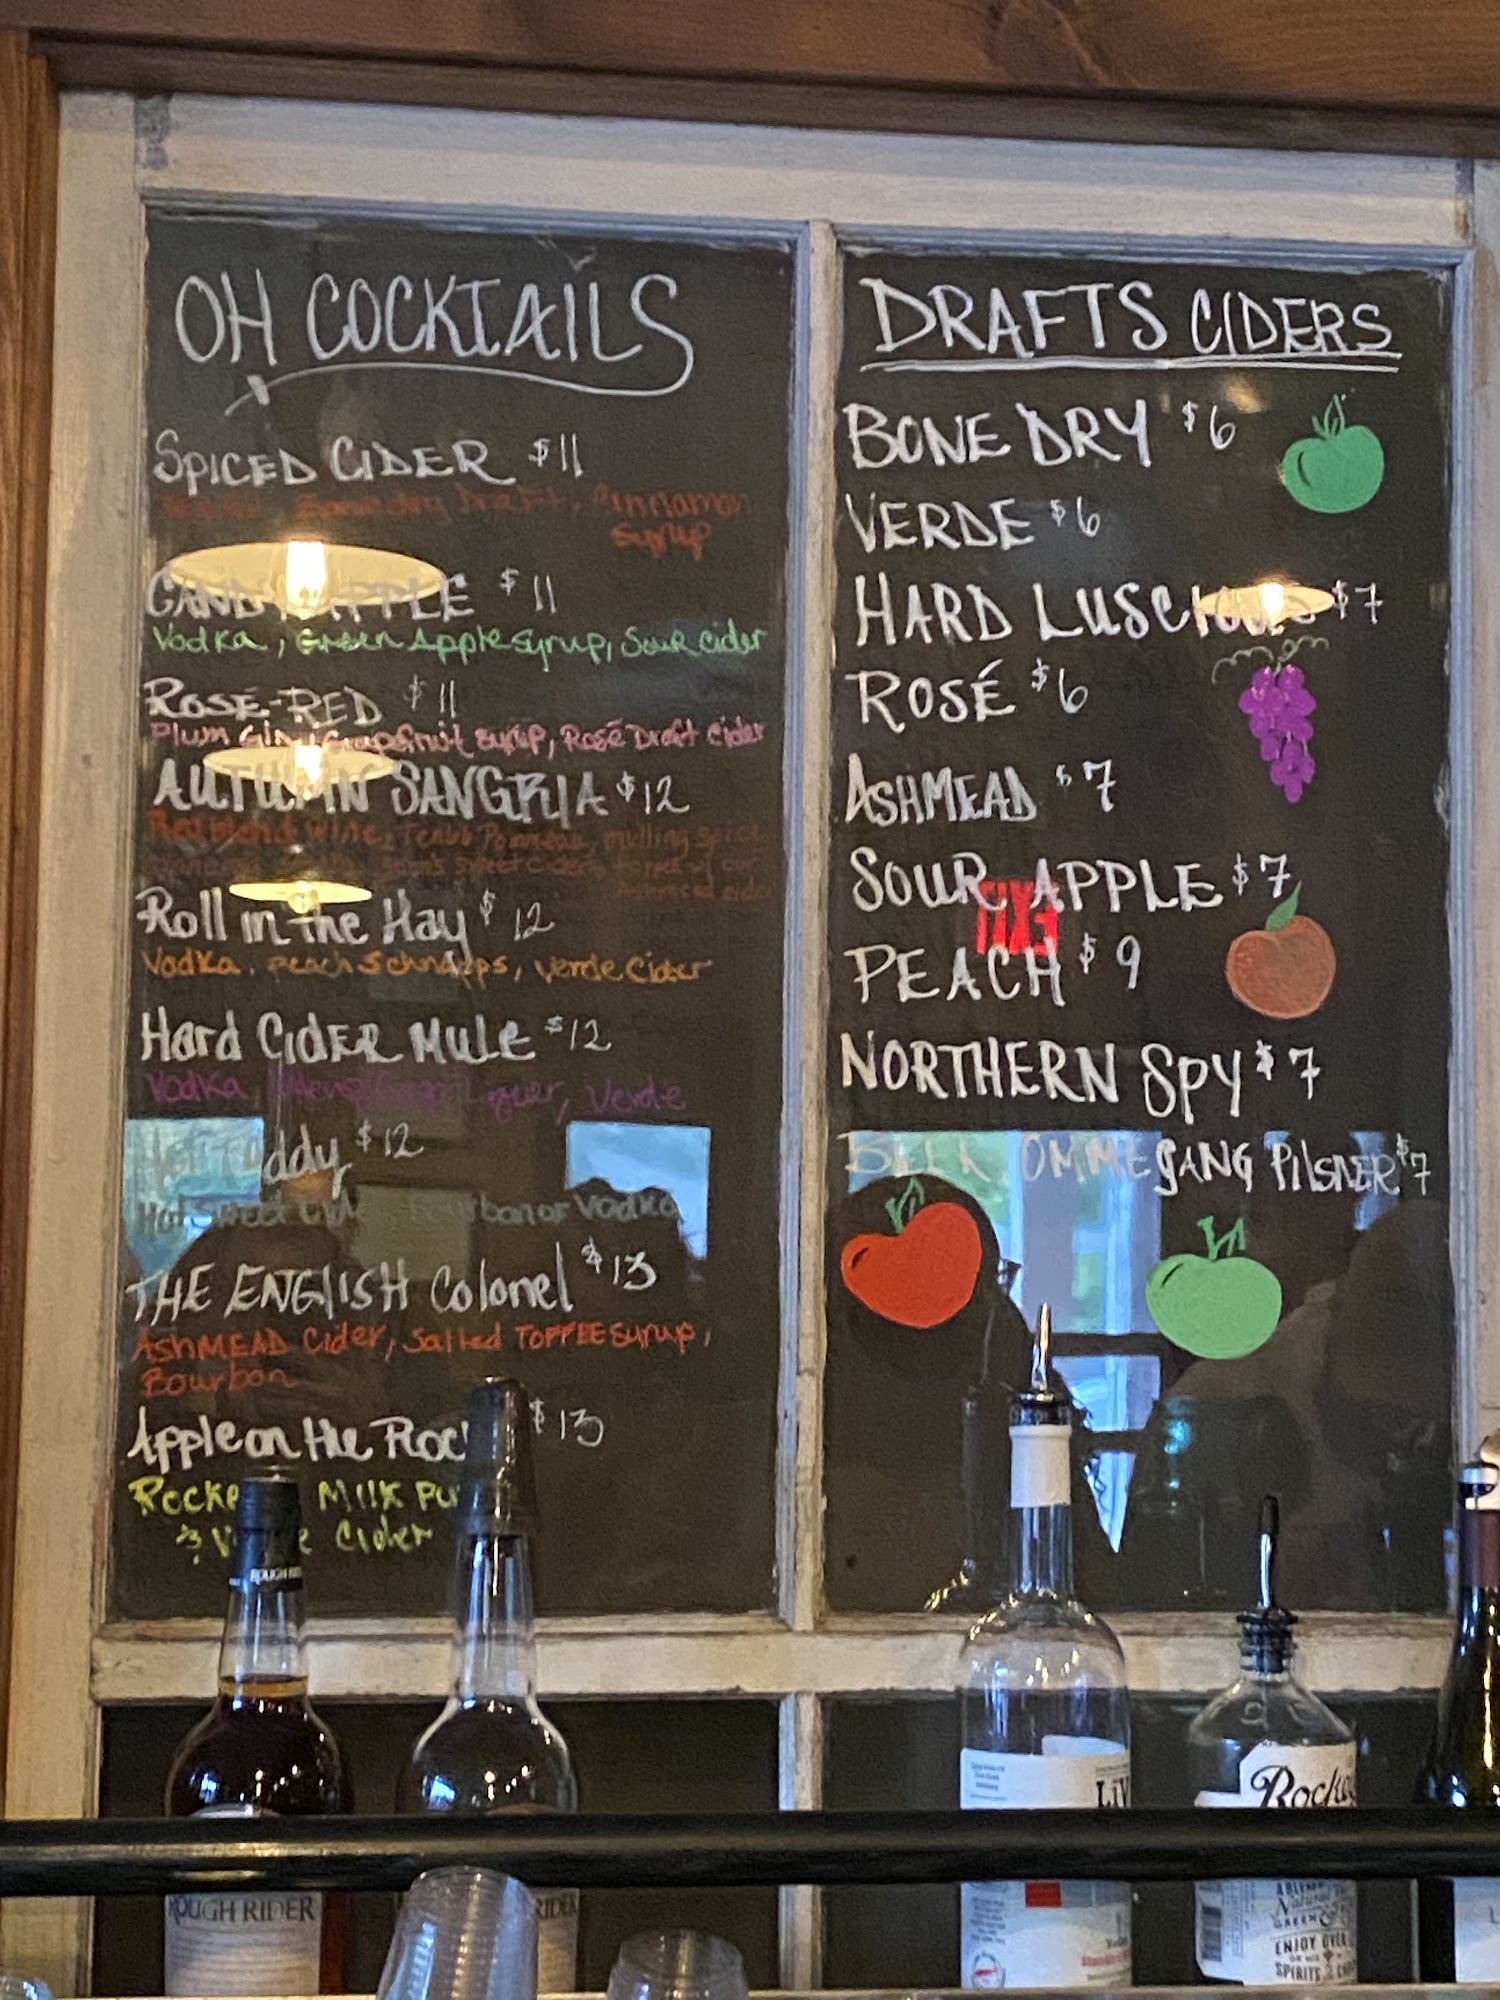 OH COCKTAILS
SPICED CIDER $11
Bone dry Draft, Cinnamon
Syrup
CANDY APPLE $11
Vodka, Green Apple Syrup, Sour cider
ROSÉ-RED $11
Plum Gin, Grapefruit syrup, Rosé Draft Cider
AUTUMN SANGRIA $12
Red Blend Wine, Pommeau, mulling spice
Sweet Cider, topped w/ our
Roll in the Hay $12
Vodka, peach Schnapps, Verde Cider
Hard CIDER MULE $12
Vodka, Verde
Hot Toddy $12
Hot Sweet Cider, Bourbon or Vodka
THE ENGLISH Colonel $13
ASHMEAD Cider, Salted TOFFEE Syrup,
Bourbon
Apple on the Roc $13
Rocke Milk Pu
& V e Cider
DRAFTS CIDERS
BONE DRY $6
VERDE $6
HARD LUSCIOUS $7
ROSÉ $6
ASHMEAD $7
SOUR APPLE $7
EXIT
PEACH $9
NORTHERN SPY $7
OMMEGANG PILSNER $7
ROUGH RIDER
LIV
Rock
ROUGH RIDER
RIDER
Natural
GREEN
ENJOY OVER
SPIRITS